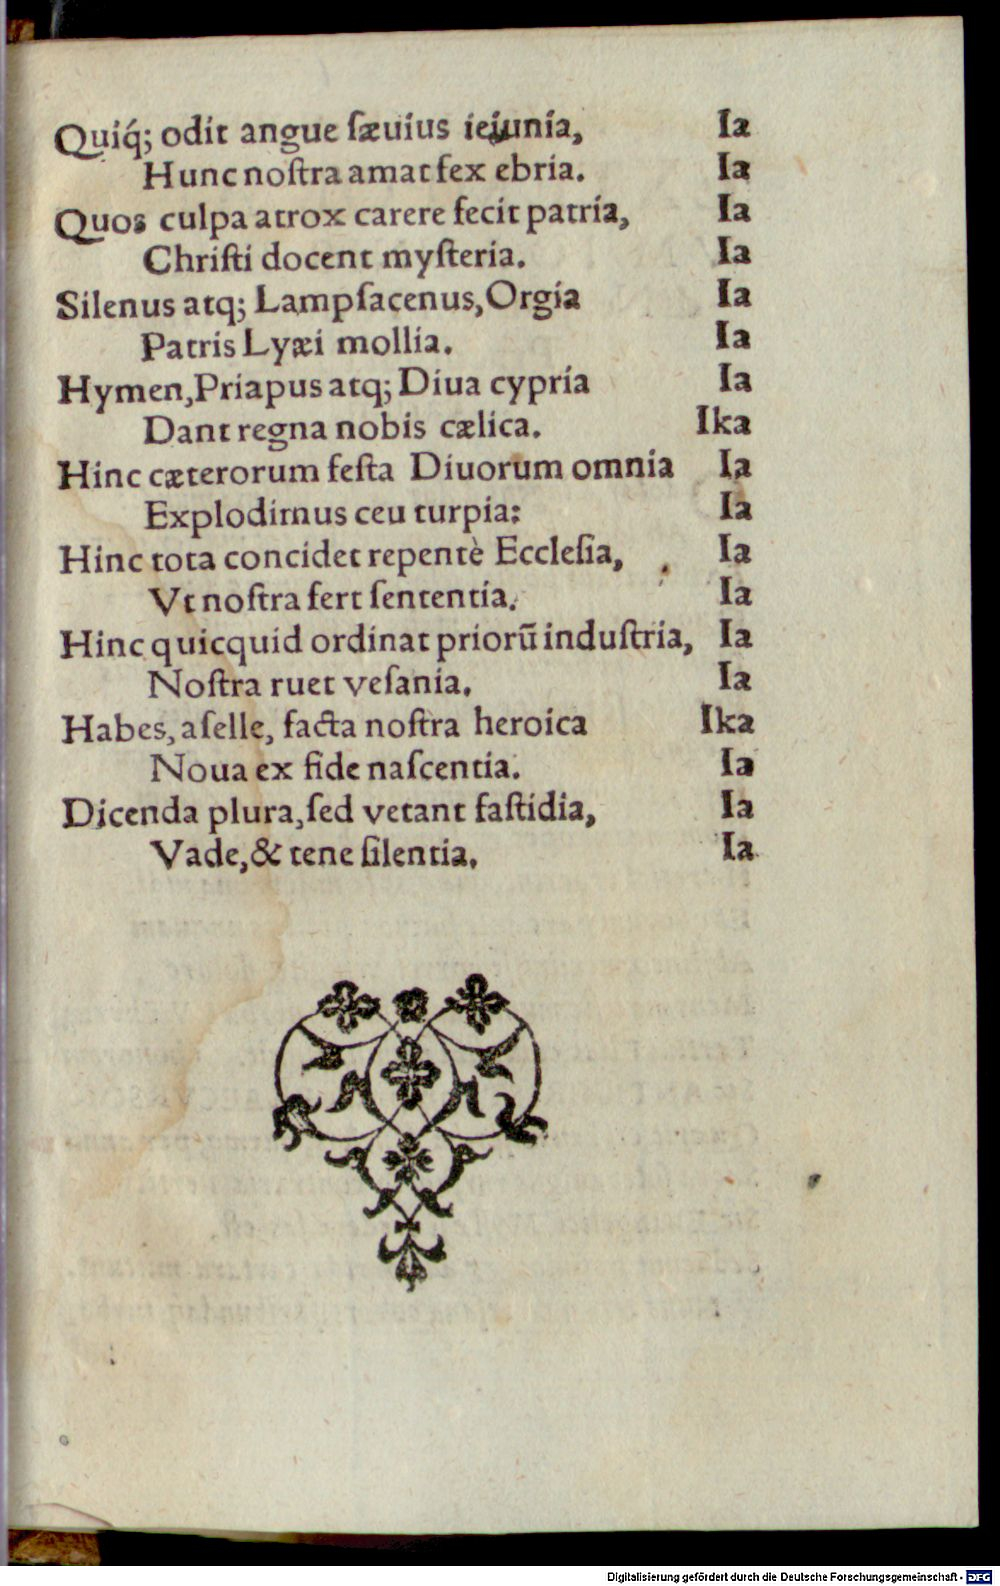 Quiq́; odit angue ſæuius ieiunia, Ia
Hunc noſtra amat fex ebria. Ia
Quos culpa atrox carere fecit patria, Ia
Chriſti docent myſteria. Ia
Silenus atq; Lampſacenus, Orgia Ia
Patris Lyæi mollia. Ia
Hymen, Priapus atq; Diua cypria Ia
Dant regna nobis cælica. Ika
Hinc cæterorum feſta Diuorum omnia Ia
Explodimus ceu turpia: Ia
Hinc tota concidet repentè Eccleſia, Ia
Vt noſtra fert ſententia. Ia
Hinc quicquid ordinat priorũ induſtria, Ia
Noſtra ruet veſania. Ia
Habes, aſelle, facta noſtra heroica Ika
Noua ex fide naſcentia. Ia
Dicenda plura, ſed vetant faſtidia, Ia
Vade, & tene ſilentia. Ia
Digitalisierung gefördert durch die Deutsche Forschungsgemeinschaft - DFG